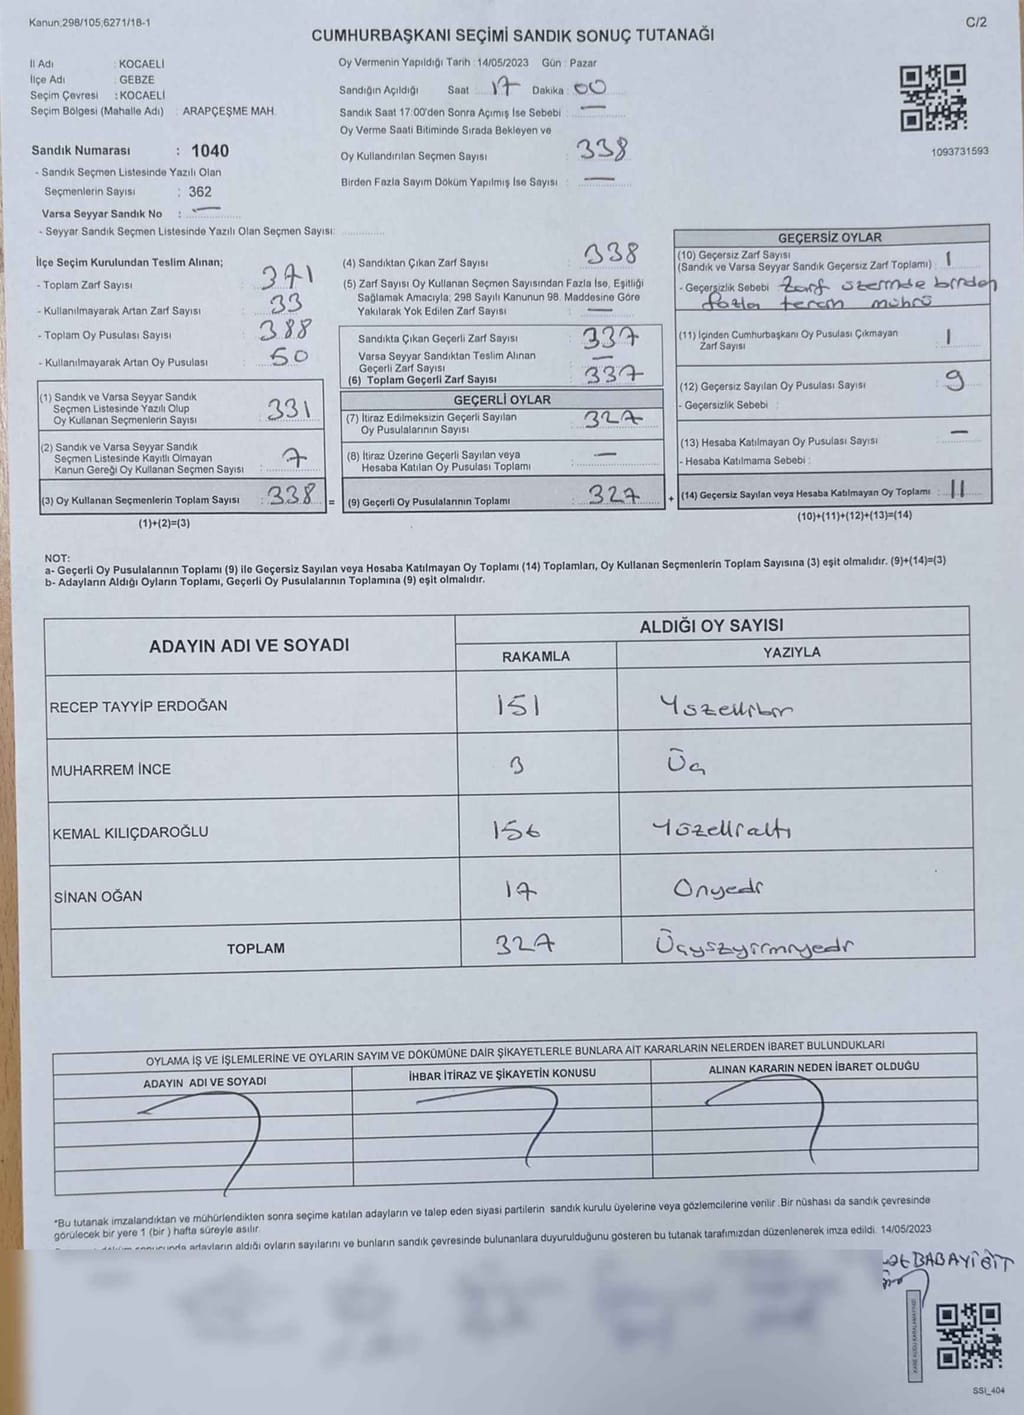 Kanun;298/105,6271/18-1
C/2
CUMHURBAŞKANI SEÇİMİ SANDIK SONUÇ TUTANAĞI
İl Adı : KOCAELİ
İlçe Adı : GEBZE
Seçim Çevresi : KOCAELİ
Seçim Bölgesi (Mahalle Adı) : ARAPÇEŞME MAH.
Sandık Numarası : 1040
- Sandık Seçmen Listesinde Yazılı Olan
Seçmenlerin Sayısı : 362
Varsa Seyyar Sandık No : —
- Seyyar Sandık Seçmen Listesinde Yazılı Olan Seçmen Sayısı:
Oy Vermenin Yapıldığı Tarih : 14/05/2023 Gün : Pazar
Sandığın Açıldığı Saat : 17 Dakika : 00
Sandık Saat 17:00'den Sonra Açımış İse Sebebi : —
Oy Verme Saati Bitiminde Sırada Bekleyen ve
Oy Kullandırılan Seçmen Sayısı : 338
Birden Fazla Sayım Döküm Yapılmış İse Sayısı : —
1093731593
İlçe Seçim Kurulundan Teslim Alınan;
- Toplam Zarf Sayısı : 371
- Kullanılmayarak Artan Zarf Sayısı : 33
- Toplam Oy Pusulası Sayısı : 388
- Kullanılmayarak Artan Oy Pusulası : 50
(1) Sandık ve Varsa Seyyar Sandık
Seçmen Listesinde Yazılı Olup
Oy Kullanan Seçmenlerin Sayısı : 331
(2) Sandık ve Varsa Seyyar Sandık
Seçmen Listesinde Kayıtlı Olmayan
Kanun Gereği Oy Kullanan Seçmen Sayısı : 7
(3) Oy Kullanan Seçmenlerin Toplam Sayısı : 338 =
(1)+(2)=(3)
(4) Sandıktan Çıkan Zarf Sayısı : 338
(5) Zarf Sayısı Oy Kullanan Seçmen Sayısından Fazla İse, Eşitliği
Sağlamak Amacıyla; 298 Sayılı Kanunun 98. Maddesine Göre
Yakılarak Yok Edilen Zarf Sayısı : —
Sandıkta Çıkan Geçerli Zarf Sayısı : 337
Varsa Seyyar Sandıktan Teslim Alınan
Geçerli Zarf Sayısı : —
(6) Toplam Geçerli Zarf Sayısı : 337
GEÇERLİ OYLAR
(7) İtiraz Edilmeksizin Geçerli Sayılan
Oy Pusulalarının Sayısı : 327
(8) İtiraz Üzerine Geçerli Sayılan veya
Hesaba Katılan Oy Pusulası Toplamı : —
(9) Geçerli Oy Pusulalarının Toplamı : 327 +
GEÇERSİZ OYLAR
(10) Geçersiz Zarf Sayısı
(Sandık ve Varsa Seyyar Sandık Geçersiz Zarf Toplamı) : 1
- Geçersizlik Sebebi : Zarf üzerinde birden
fazla tercih mührü
(11) İçinden Cumhurbaşkanı Oy Pusulası Çıkmayan
Zarf Sayısı : 1
(12) Geçersiz Sayılan Oy Pusulası Sayısı : 9
- Geçersizlik Sebebi :
(13) Hesaba Katılmayan Oy Pusulası Sayısı : —
- Hesaba Katılmama Sebebi :
(14) Geçersiz Sayılan veya Hesaba Katılmayan Oy Toplamı : 11
(10)+(11)+(12)+(13)=(14)
NOT:
a- Geçerli Oy Pusulalarının Toplamı (9) ile Geçersiz Sayılan veya Hesaba Katılmayan Oy Toplamı (14) Toplamları, Oy Kullanan Seçmenlerin Toplam Sayısına (3) eşit olmalıdır. (9)+(14)=(3)
b- Adayların Aldığı Oyların Toplamı, Geçerli Oy Pusulalarının Toplamına (9) eşit olmalıdır.
ADAYIN ADI VE SOYADI
ALDIĞI OY SAYISI
RAKAMLA YAZIYLA
RECEP TAYYİP ERDOĞAN 151 Yüzellibir
MUHARREM İNCE 3 Üç
KEMAL KILIÇDAROĞLU 156 Yüzellialtı
SİNAN OĞAN 17 Onyedi
TOPLAM 327 Üçyüzyirmiyedi
OYLAMA İŞ VE İŞLEMLERİNE VE OYLARIN SAYIM VE DÖKÜMÜNE DAİR ŞİKAYETLERLE BUNLARA AİT KARARLARIN NELERDEN İBARET BULUNDUKLARI
ADAYIN ADI VE SOYADI İHBAR İTİRAZ VE ŞİKAYETİN KONUSU ALINAN KARARIN NEDEN İBARET OLDUĞU
*Bu tutanak imzalandıktan ve mühürlendikten sonra seçime katılan adayların ve talep eden siyasi partilerin sandık kurulu üyelerine veya gözlemcilerine verilir .Bir nüshası da sandık çevresinde
görülecek bir yere 1 (bir ) hafta süreyle asılır.
adayların aldığı oyların sayılarını ve bunların sandık çevresinde bulunanlara duyurulduğunu gösteren bu tutanak tarafımızdan düzenlenerek imza edildi. 14/05/2023
BABAYİĞİT
KARE KODU KARALAMAYINIZ
SSİ_404